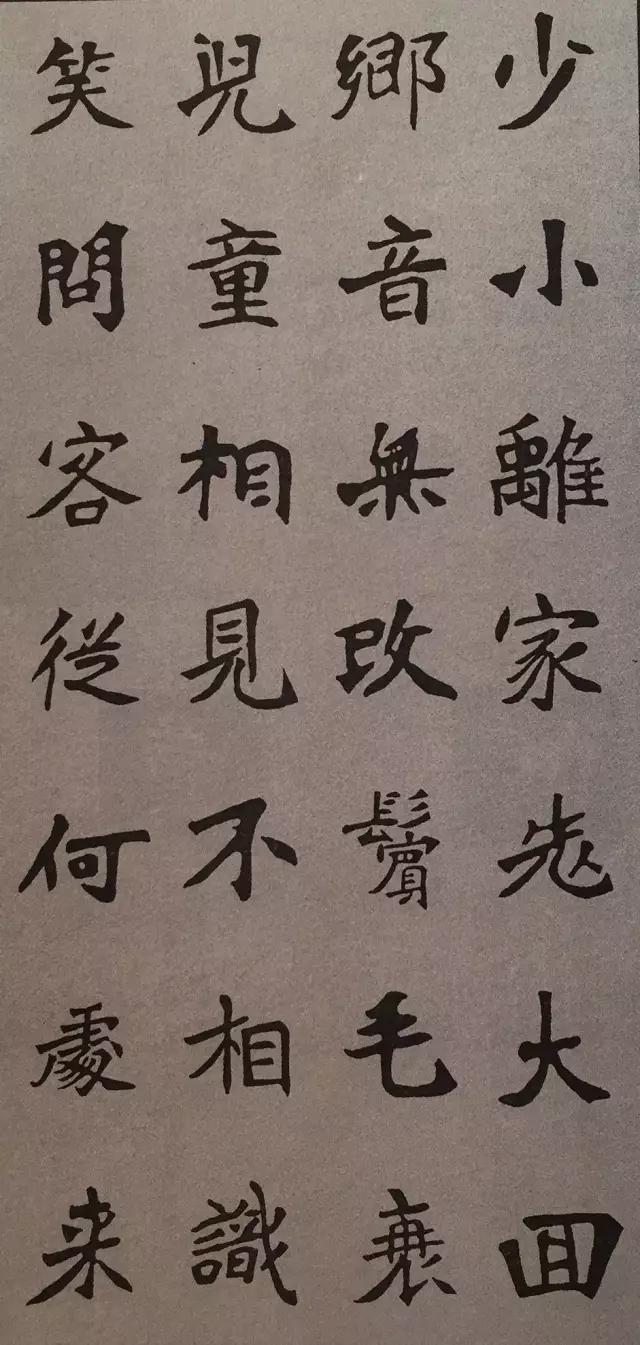 少小離家老大回
鄉音無改鬢毛衰
兒童相見不相識
笑問客從何處来